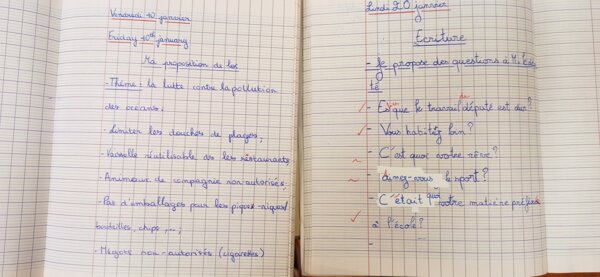 Vendredi 10 janvier
Friday 10th january
Ma proposition de loi
- Thème : la lutte contre la pollution
des océans.
- Limiter les douches de plages,
- Vaisselle réutilisable ds les restaurants
- Animaux de compagnie non-autorisés,
- Pas d'emballages pour les piques-niques
bouteilles, chips, ...;
- Mégots non-autorisés (cigarettes)
Lundi 20 janvier
Ecriture
- Je propose des questions à M.
té
- Es que le travail du député est dur ?
- Vous habitez loin ?
- C'est quoi votre rêve ?
- aimez-vous le sport ?
- C'était quoi votre matière préférée
à l'école ?
-